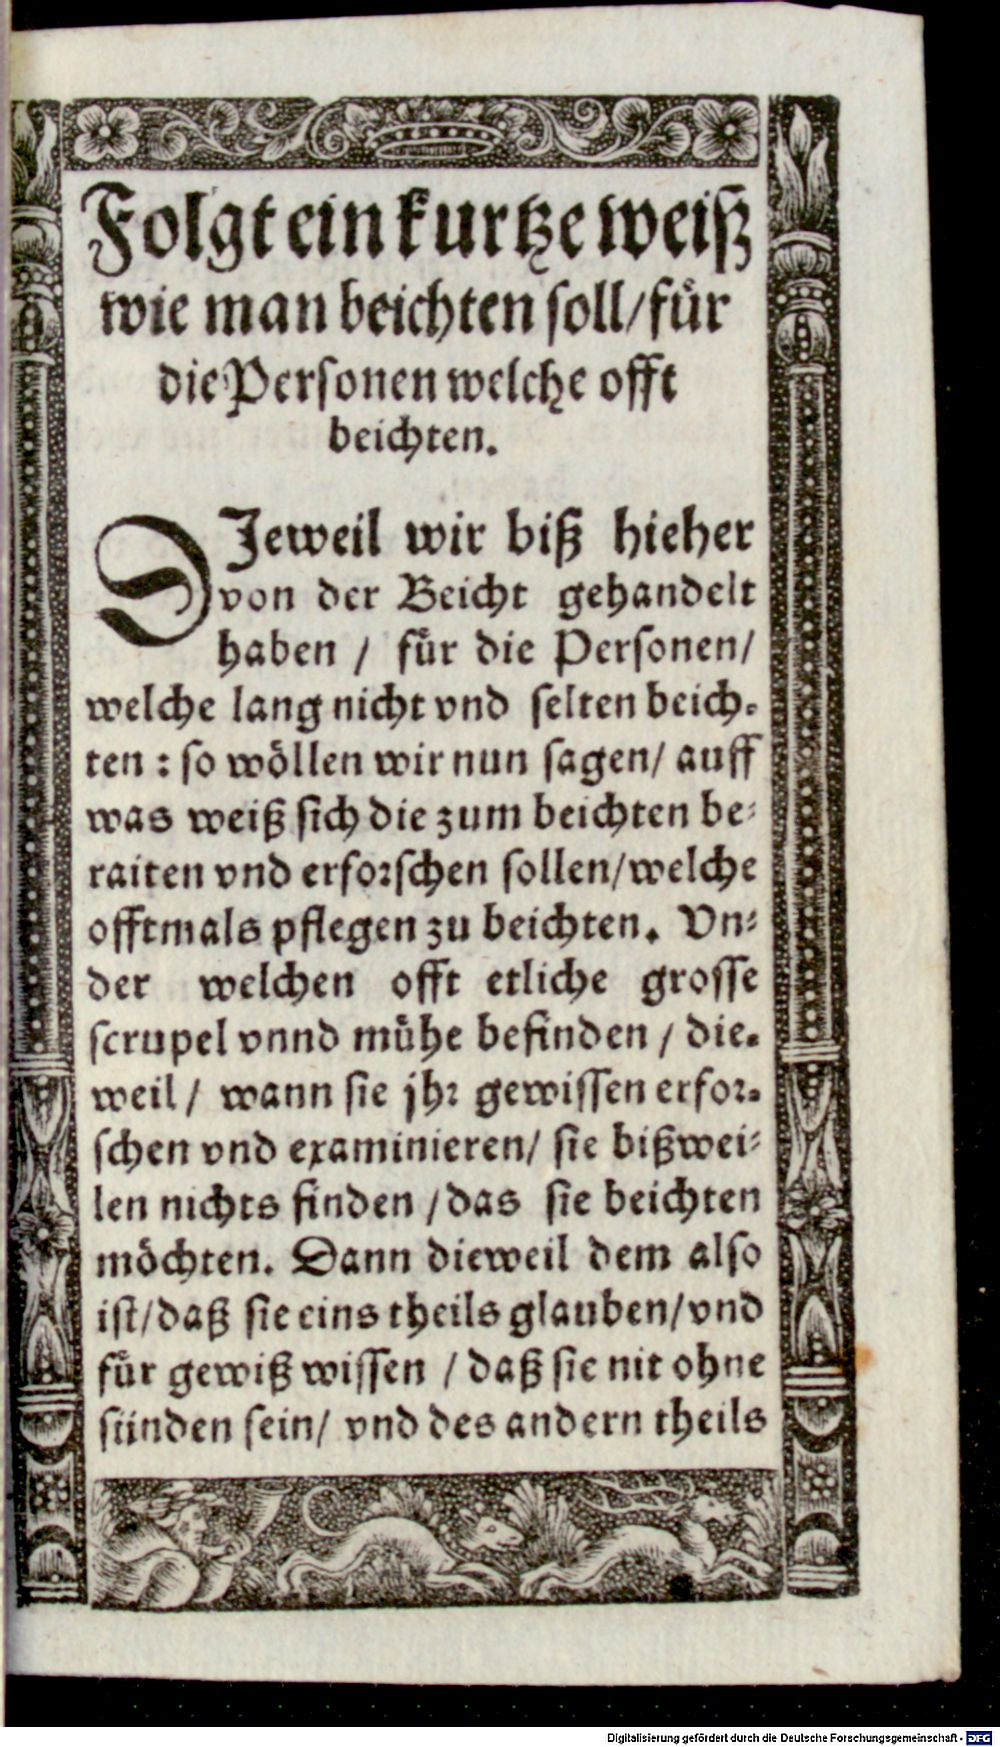 Folgt ein kurtze weiß
wie man beichten soll/für
die Personen welche offt
beichten.
DJeweil wir biß hieher
von der Beicht gehandelt
haben / für die Personen/
welche lang nicht vnd selten beich-
ten : so wöllen wir nun sagen/ auff
was weiß sich die zum beichten be-
raiten vnd erforschen sollen/welche
offtmals pflegen zu beichten. Vn-
der welchen offt etliche grosse
scrupel vnnd mühe befinden / die-
weil / wann sie jhr gewissen erfor-
schen vnd examinieren/ sie bißwei-
len nichts finden /das sie beichten
möchten. Dann dieweil dem also
ist/daß sie eins theils glauben/vnd
für gewiß wissen / daß sie nit ohne
sünden sein/ vnd des andern theils
Digitalisierung gefördert durch die Deutsche Forschungsgemeinschaft - DFG